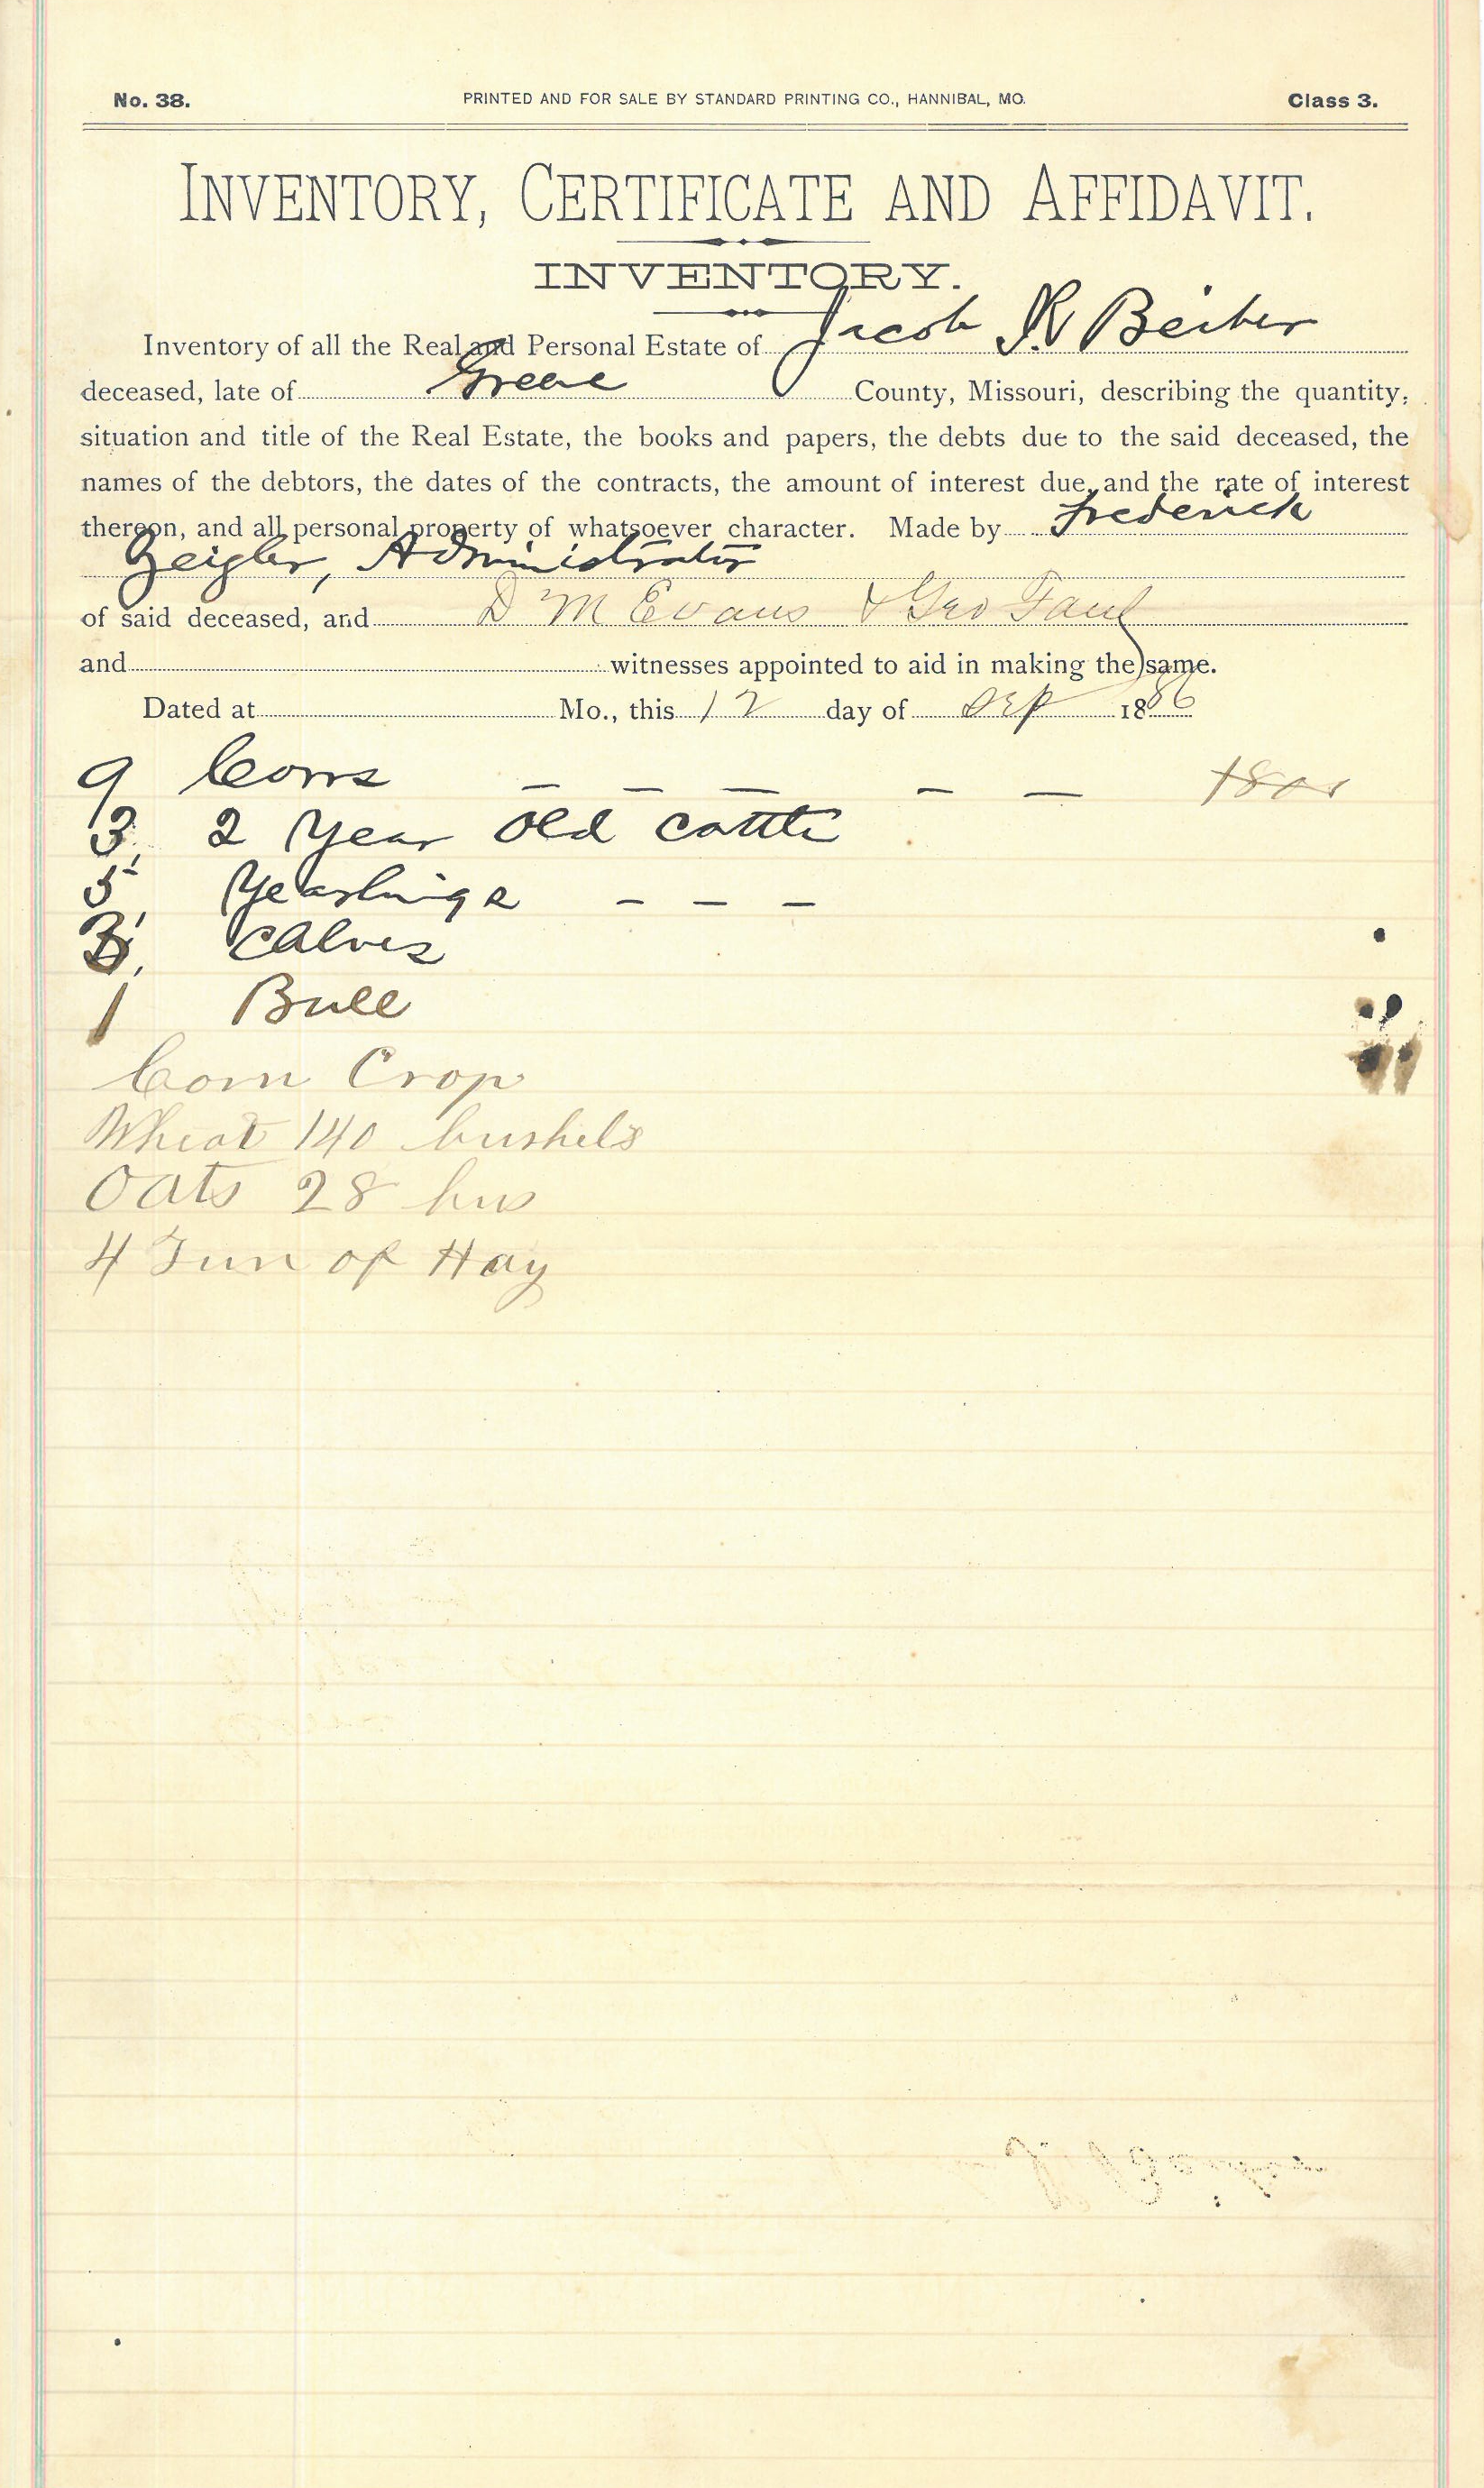 No. 38. PRINTED AND FOR SALE BY STANDARD PRINTING CO., HANNIBAL, MO. Class 3.
INVENTORY, CERTIFICATE AND AFFIDAVIT.
INVENTORY.
Inventory of all the Real and Personal Estate of Jacob R Beiber
deceased, late of Greene County, Missouri, describing the quantity,
situation and title of the Real Estate, the books and papers, the debts due to the said deceased, the
names of the debtors, the dates of the contracts, the amount of interest due, and the rate of interest
thereon, and all personal property of whatsoever character. Made by Frederick
Zeigler, Administrator
of said deceased, and D M Evans & Geo Faul
and witnesses appointed to aid in making the same.
Dated at Mo., this 12 day of Sep 1886
9 Cows — — — — —
3, 2 Year old cattle
5 Yearlings — — —
3, calves
1 Bull
Corn Crop
Wheat 140 bushels
Oats 28 bus
4 Tun of Hay